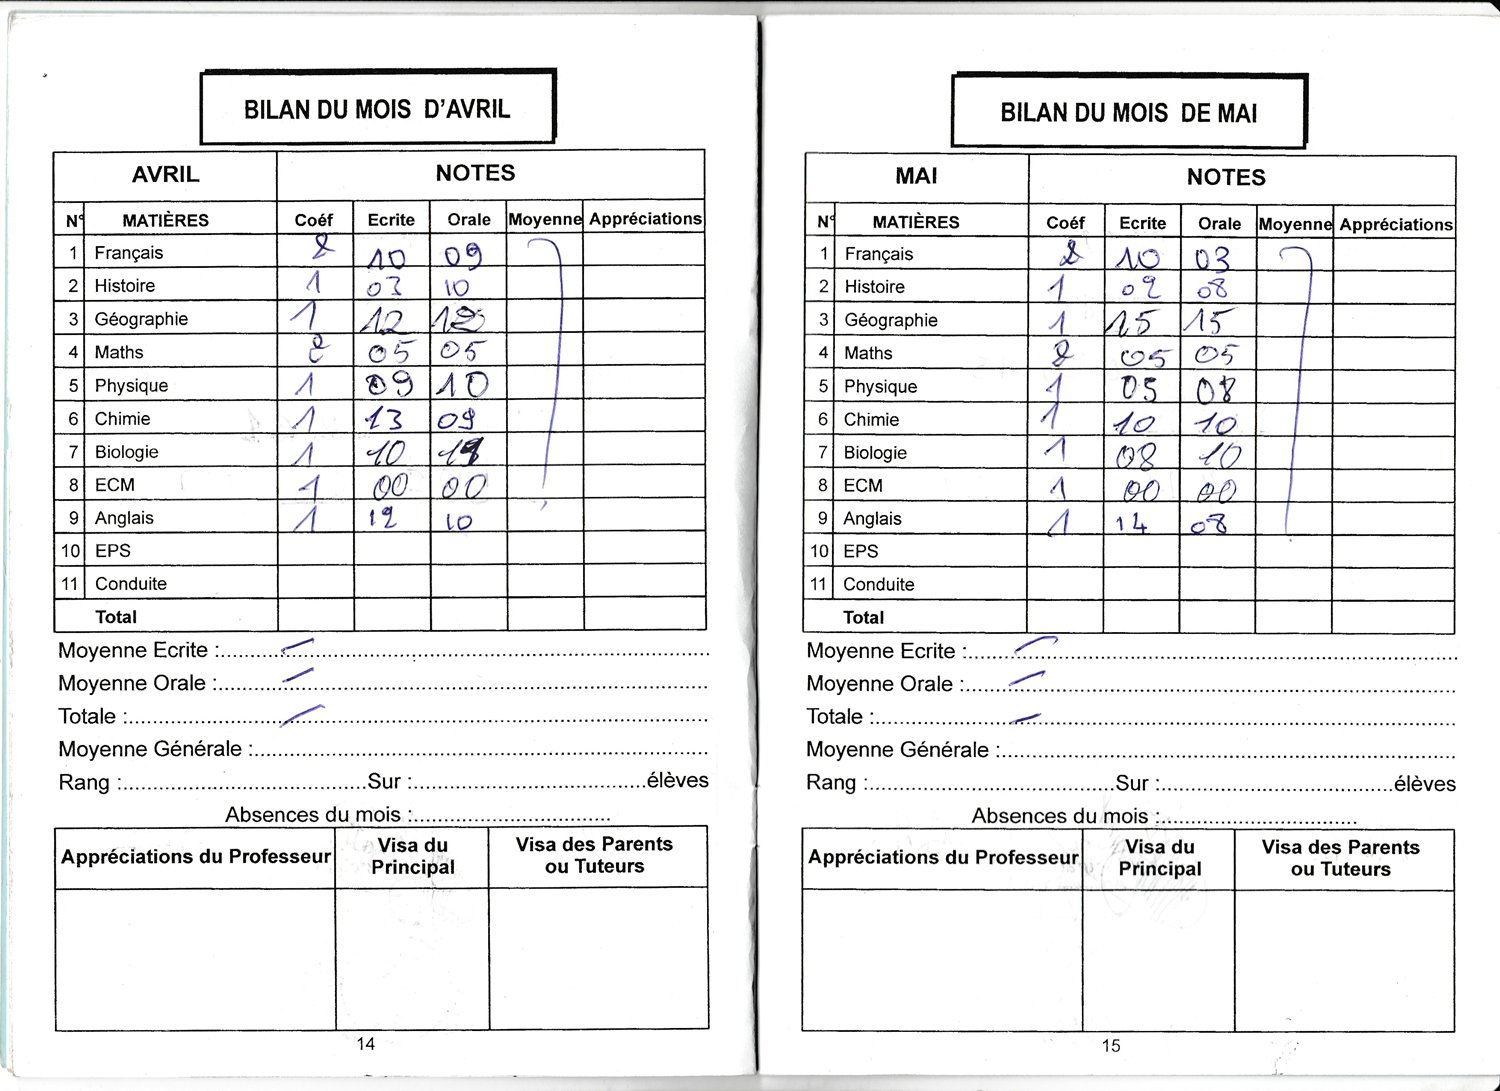 BILAN DU MOIS D'AVRIL
AVRIL NOTES
N° MATIÈRES Coéf Ecrite Orale Moyenne Appréciations
1 Français 2 10 09
2 Histoire 1 03 10
3 Géographie 1 12
4 Maths 2 05 05
5 Physique 1 09 10
6 Chimie 1 13 09
7 Biologie 1 10
8 ECM 1 00 00
9 Anglais 1 12 10
10 EPS
11 Conduite
Total
Moyenne Ecrite :
Moyenne Orale :
Totale :
Moyenne Générale :
Rang : Sur : élèves
Absences du mois :
Appréciations du Professeur Visa du Principal Visa des Parents ou Tuteurs
14
BILAN DU MOIS DE MAI
MAI NOTES
N° MATIÈRES Coéf Ecrite Orale Moyenne Appréciations
1 Français 2 10 03
2 Histoire 1 09 08
3 Géographie 1 15 15
4 Maths 2 05 05
5 Physique 1 05 08
6 Chimie 1 10 10
7 Biologie 1 08 10
8 ECM 1 00 00
9 Anglais 1 14 08
10 EPS
11 Conduite
Total
Moyenne Ecrite :
Moyenne Orale :
Totale :
Moyenne Générale :
Rang : Sur : élèves
Absences du mois :
Appréciations du Professeur Visa du Principal Visa des Parents ou Tuteurs
15